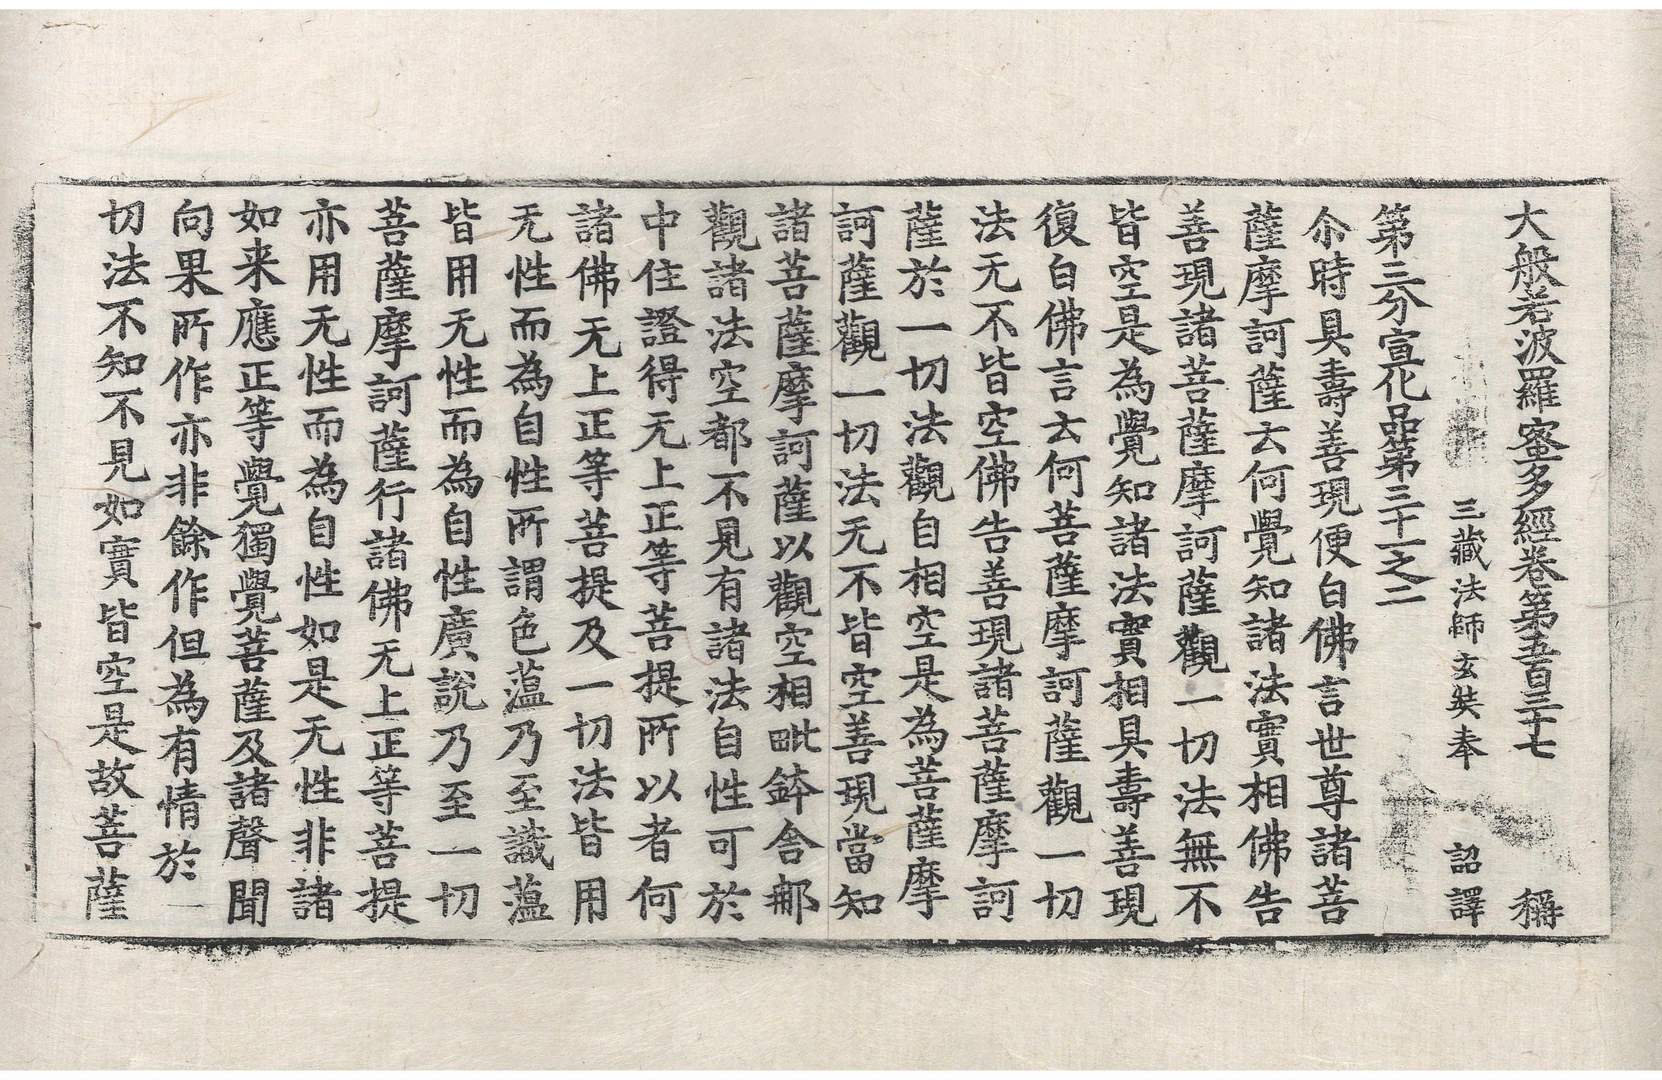 大般若波羅蜜多經卷第五百三十七　稱
三藏法師玄奘奉　詔譯
第三分宣化品第三十一之二
尒時具壽善現便白佛言世尊諸菩
薩摩訶薩云何覺知諸法實相佛告
善現諸菩薩摩訶薩觀一切法無不
皆空是為覺知諸法實相具壽善現
復白佛言云何菩薩摩訶薩觀一切
法无不皆空佛告善現諸菩薩摩訶
薩於一切法觀自相空是為菩薩摩
訶薩觀一切法无不皆空善現當知
諸菩薩摩訶薩以觀空相毗鉢舍那
觀諸法空都不見有諸法自性可於
中住證得无上正等菩提所以者何
諸佛无上正等菩提及一切法皆用
无性而為自性所謂色薀乃至識薀
皆用无性而為自性廣說乃至一切
菩薩摩訶薩行諸佛无上正等菩提
亦用无性而為自性如是无性非諸
如来應正等覺獨覺菩薩及諸聲聞
向果所作亦非餘作但為有情於一
切法不知不見如實皆空是故菩薩